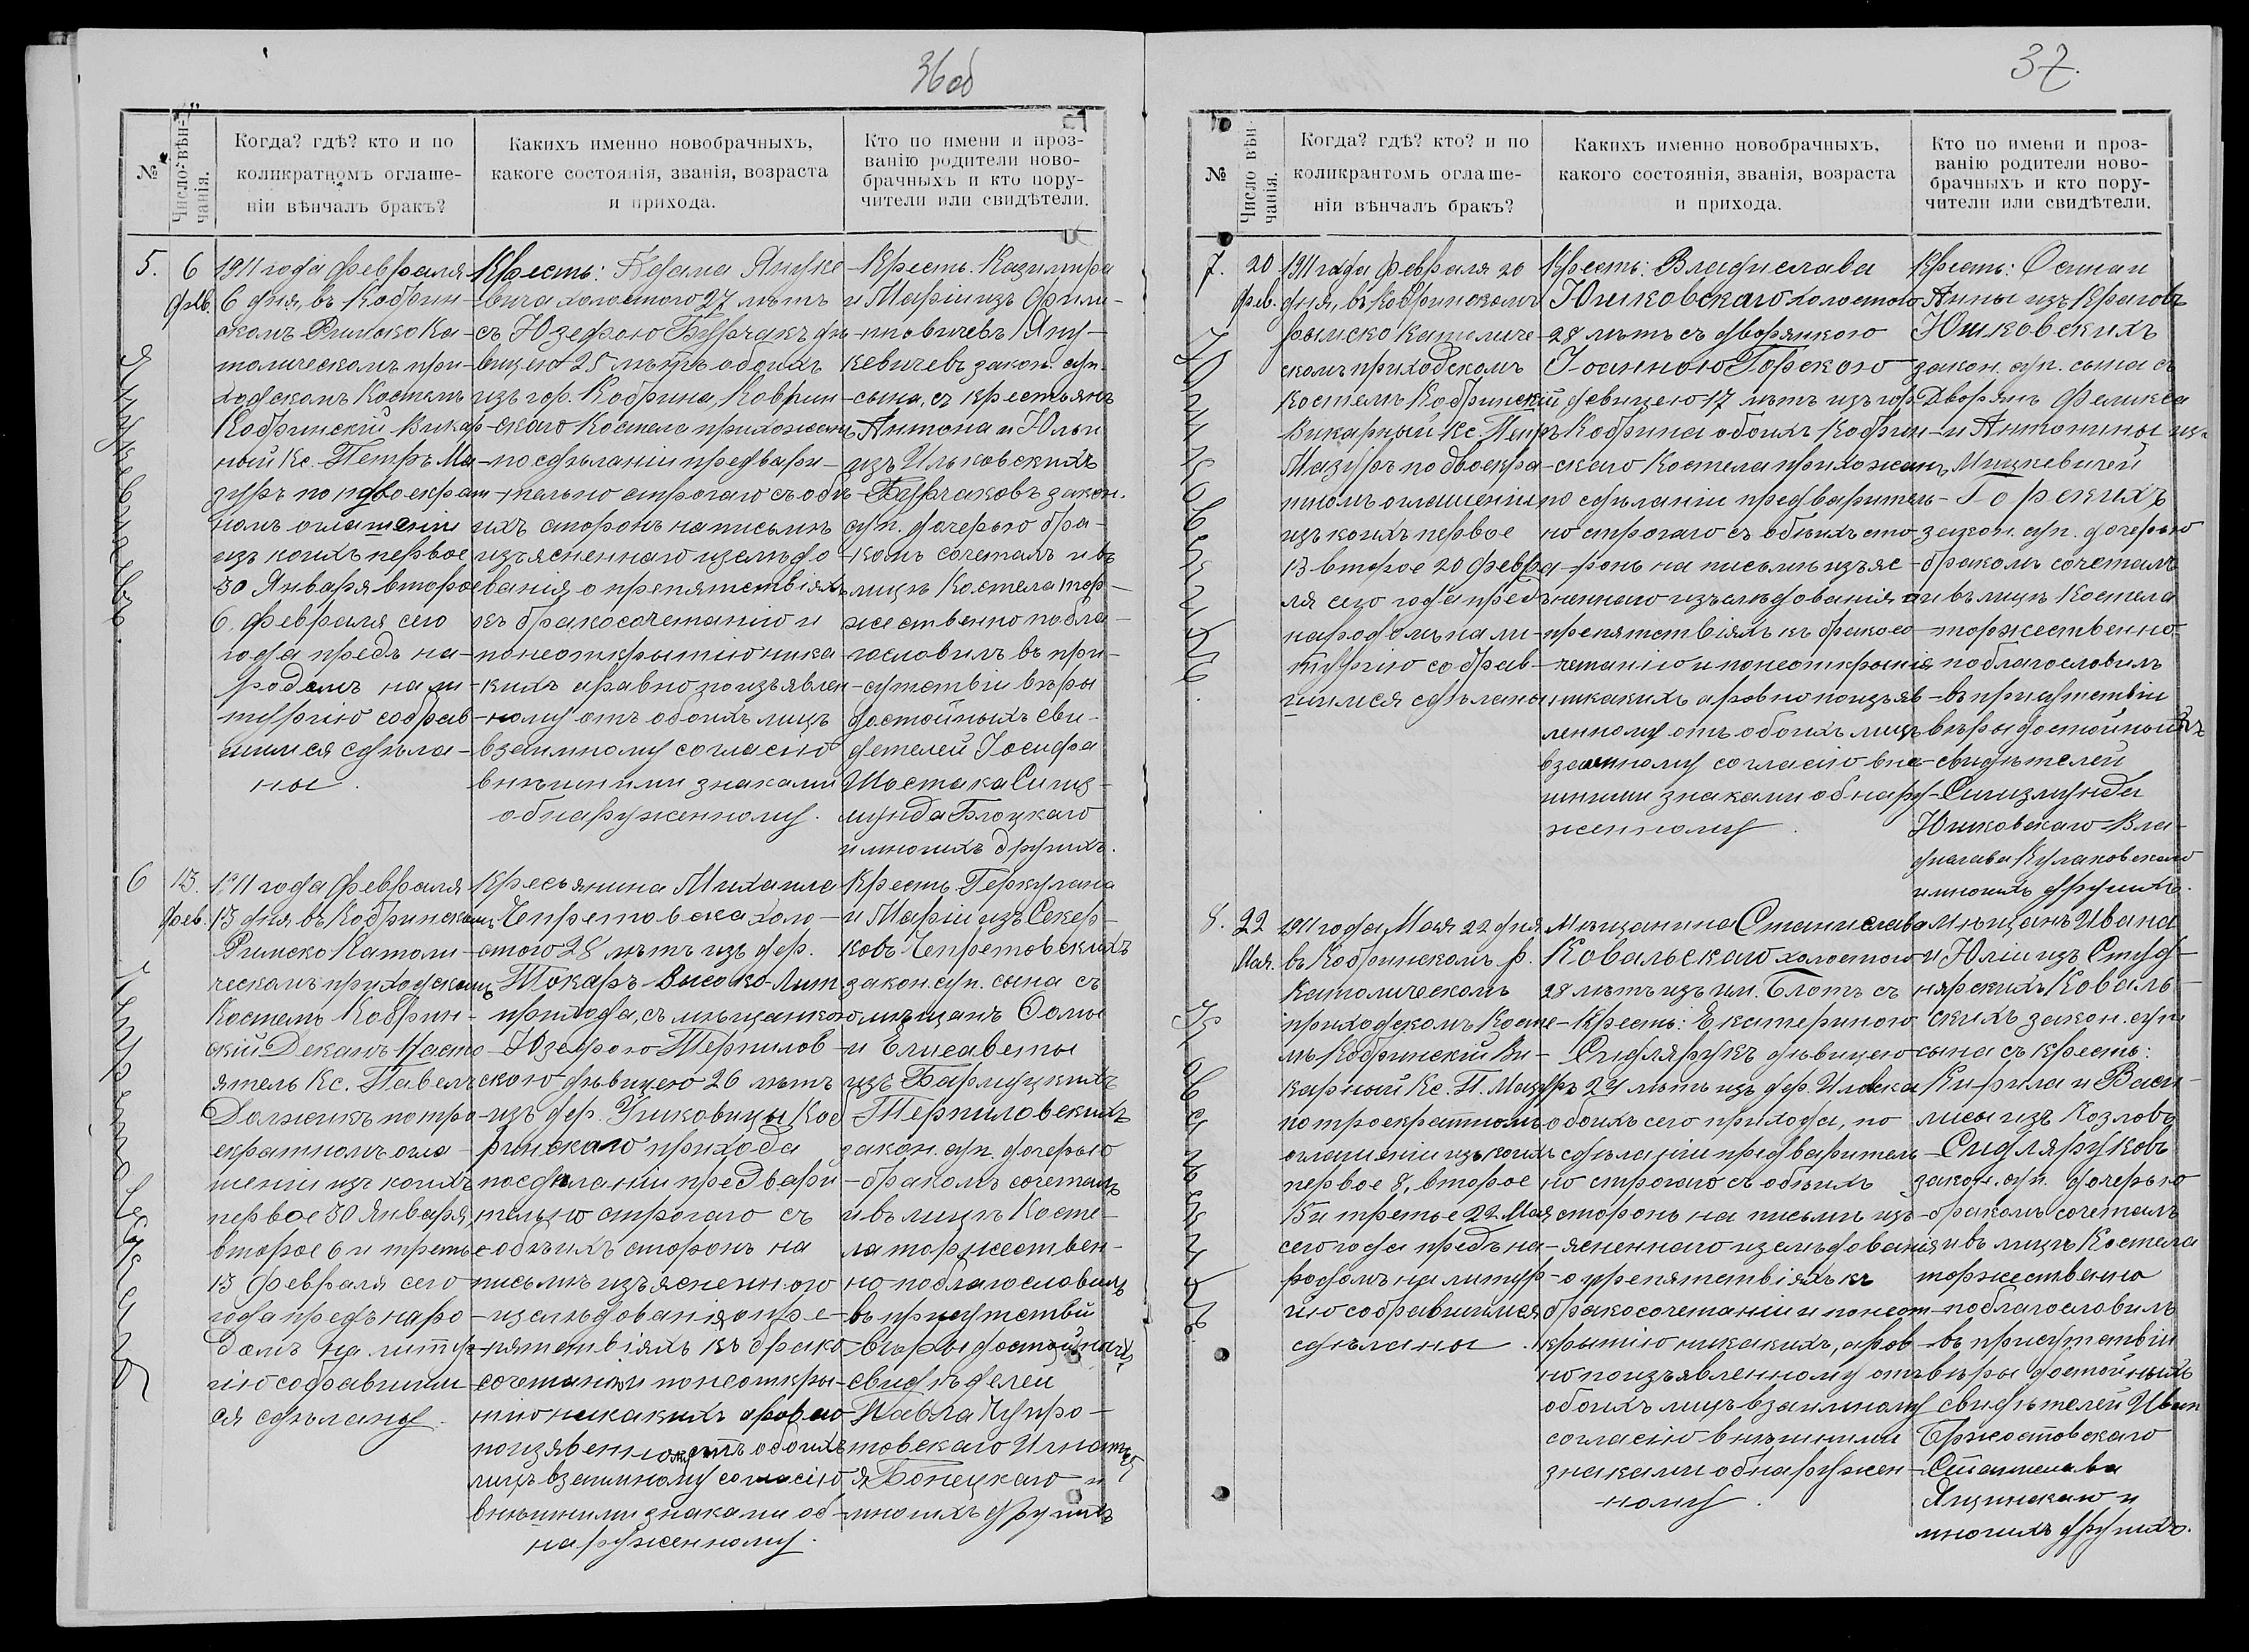 36об
№
Число вѣн-
чанія.
Когда? гдѣ? кто и по
коликратномъ оглаше-
ніи вѣнчалъ бракъ?
Какихъ именно новобрачныхъ,
какого состоянія, званія, возраста
и прихода.
Кто по имени и проз-
ванію родители ново-
брачныхъ и кто пору-
чители или свидѣтели.
5.
6
фев.
Янукевичевъ.
1911 года февраля
6 дня, въ Кобрин-
скомъ Римско Ка-
толическомъ при-
ходскомъ Костелѣ
Кобринскій Викар-
ный Кс. Петръ Ма-
зуръ по двоекрат-
номъ оглашеніи
изъ коихъ первое
30 Января второе
6. февраля сего
года предъ на-
родомъ на ли-
тургію собрав-
шимся сдѣла-
ны.
Кресть: Адама Януке-
вича холостого 27 лѣтъ
съ Юзефою Бурчакъ дѣ-
вицею 25 лѣтъ обоихъ
изъ гор. Кобрина, Кобрин-
скаго Костела прихожанъ
по сдѣланіи предвари-
тельно строгаго съ обѣ-
ихъ сторонъ на письмѣ
изъясненнаго изслѣдо-
ванія о препятствіяхъ
къ бракосочетанію и
по неоткрытію ника-
кихъ а равно по изъявлен-
ному отъ обоихъ лицъ
взаимному согласію
внѣшними знаками
обнаруженному.
Кресть. Казимира
и Маріи изъ
Яну-
кевичевъ закон. суп.
сына, съ крестьянъ
Антона и Юльи
изъ Ильковскихъ
Бурчаковъ закон.
суп. дочерью бра-
комъ сочеталъ и въ
лицѣ Костела тор-
жественно побла-
гословилъ въ при-
сутствіи вѣры
достойныхъ сви-
дѣтелей Іосифа
Шостака Сигиз-
мунда Блоцкаго
и многихъ другихъ.
6
13.
фев.
1911 года февраля
13 дня въ Кобринскомъ
Римско Католи-
ческомъ приходскомъ
Костелѣ Кобрин-
скій Деканъ Насто-
ятель Кс. Павелъ
Должикъ по тро-
екратномъ огла-
шеніи изъ коихъ
первое 30 Января,
второе 6 и третье
13 февраля сего
года предъ наро-
домъ на литур-
гію собравшим-
ся сдѣланы.
Кресьянина Михаила
холо-
стого 28 лѣтъ изъ дер.
Токаръ Высоко-Лит.
прихода, съ мѣщанкою
Юзефою Терпилов-
скою дѣвицею 26 лѣтъ
изъ дер. Коб-
ринскаго прихода
по сдѣланіи предвари-
тельно строгаго съ
обѣихъ сторонъ на
письмѣ изъясненного
изслѣдованія о пре-
пятствіяхъ къ брако-
сочетанію и по неоткры-
тію никакихъ а равно
по изъявленному отъ обоихъ
лицъ взаимному согласію
внѣшними знаками об-
наруженному.
Кресть. Геркулана
и Маріи изъ Секер-
ковъ
закон. суп. сына съ
мѣщанъ Фомы
и Елисаветы
изъ
Терпиловскихъ
закон. суп. дочерью
бракомъ сочеталъ
и въ лицѣ Косте-
ла торжествен-
но поблагословилъ
въ присутствіи
вѣры достойныхъ
свидѣтелей
Павла
и
многихъ другихъ
37.
№
Число вѣн-
чанія.
Когда? гдѣ? кто? и по
коликрантомъ оглаше-
ніи вѣнчалъ бракъ?
Какихъ именно новобрачныхъ,
какого состоянія, званія, возраста
и прихода.
Кто по имени и проз-
ванію родители ново-
брачныхъ и кто пору-
чители или свидѣтели.
7.
20
фев.
Юшковскихъ.
1911 года февраля 20
дня, въ Кобринскомъ
рымско католиче-
скомъ приходскомъ
Костелѣ Кобринскій
Викарный Кс. Петръ
Мазуръ по двоекра-
тномъ оглашеніи
изъ коихъ первое
13 второе 20 февра-
ля сего года предъ
народомъ на ли-
тургію собрав-
шимся сдѣланы
Кресть: Владислава
Юшковскаго холостого
28 лѣтъ съ дворянкою
Іоанною Горскою
дѣвицею 17 лѣтъ изъ гор.
Кобрина обоихъ Кобрин-
скаго Костела прихожанъ
по сдѣланіи предваритель-
но строгаго съ обѣихъ сто-
ронъ на письмѣ изъяс-
неннаго изъслѣдованія о
препятствіяхъ къ бракосо-
четанію и по неоткрытію
никакихъ а равно по изъяв-
ленному отъ обоихъ лицъ
взаимному согласію внѣ-
шними знаками обнару-
женному.
Кресть: Осипа и
Анны изъ
Юшковскихъ
закон. суп. сына съ
Дворянъ Феликса
и Антонины изъ
Мицкевичей
Горскихъ
закон. суп. дочерью
бракомъ сочеталъ
и въ лицѣ Костела
торжественно
поблагословилъ
въ присутствіи
вѣры достойныхъ
свидѣтелей
Сигизмунда
Юшковскаго Вла-
дислава Кулаковскаго
и многихъ другихъ.
8.
22
Мая.
Ковальскихъ.
1911 года Мая 22 дня
въ Кобринскомъ р.
Католическомъ
приходскомъ Косте-
лѣ Кобринскій Ви-
карный Кс. П. Мазуръ
по троекратномъ
оглашеніи изъ коихъ
первое 8, второе
15 и третье 22 Мая
сего года предъ на-
родомъ на литур-
гію собравшимся
сдѣланы.
Мѣщанина Станислава
Ковальскаго холостого
28 лѣтъ изъ им. Блотъ съ
Кресть: Екатериною
Сидлярукъ дѣвицею
24 лѣтъ изъ дер.
обоихъ сего прихода, по
сдѣланіи предваритель-
но строгаго съ обѣихъ
сторонъ на письмѣ изъ-
ясненнаго изслѣдованія
о препятствіяхъ къ
бракосочетаніи и по неот-
крытію никакихъ, а рав-
но по изъявленному отъ
обоихъ лицъ взаимному
согласію внѣшними
знаками обнаружен-
ному.
Мѣщанъ Ивана
и Юліи изъ
Коваль-
скихъ закон. суп.
сына съ кресть:
Кирила и Васи-
лисы изъ Козловъ
Сидляруковъ
закон. суп. дочерью
бракомъ сочеталъ
и въ лицѣ Костела
торжественно
поблагословилъ
въ присутствіи
вѣры достойныхъ
свидѣтелей Ивана
Бржостовскаго
Станислава
Ящинскаго и
многихъ другихъ.